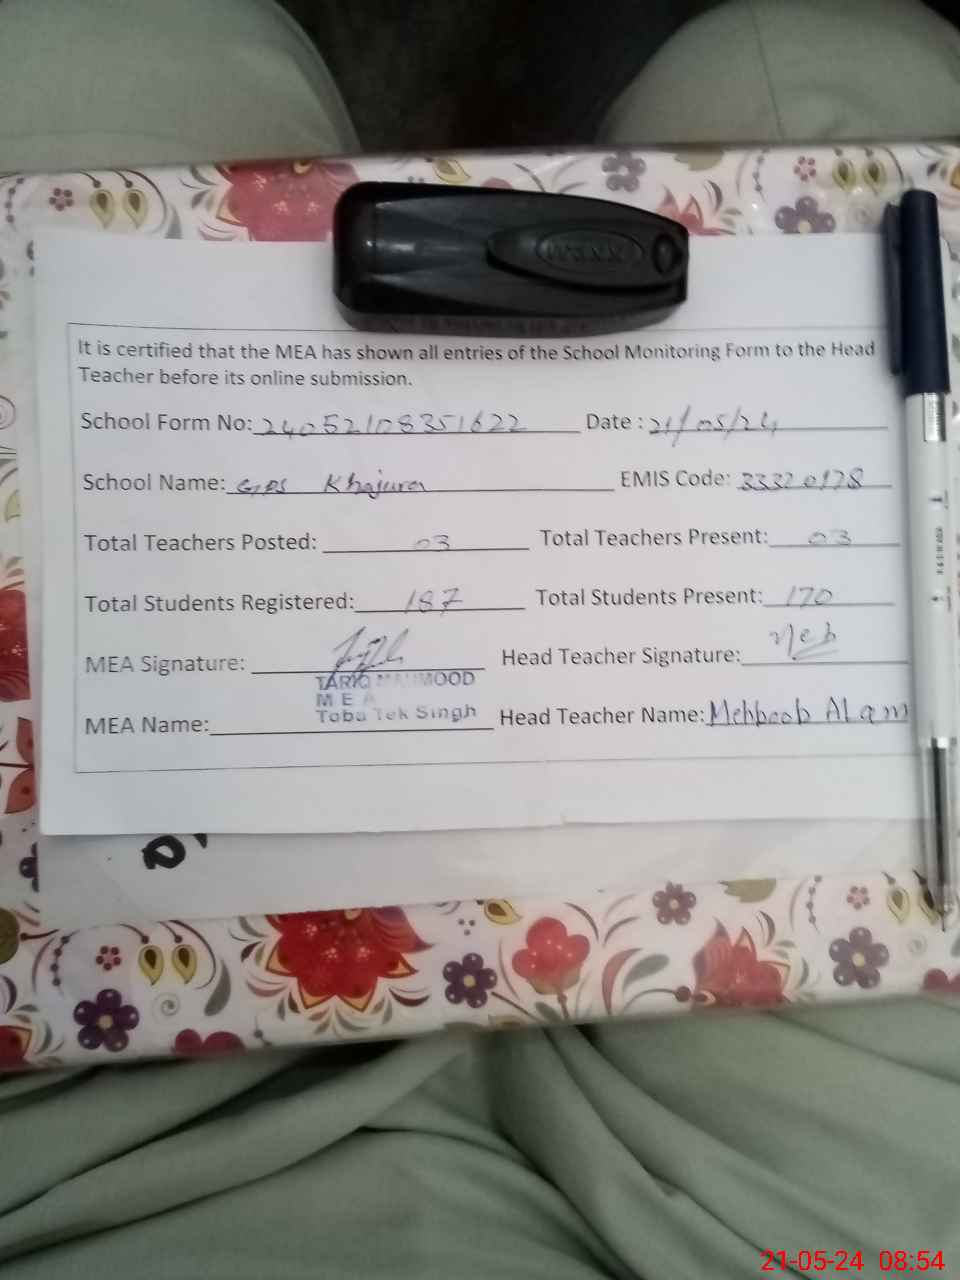 It is certified that the MEA has shown all entries of the School Monitoring Form to the Head
Teacher before its online submission.
School Form No: 24052108351622 Date : 21/05/24
School Name: GPS Khajura EMIS Code: 33320178
Total Teachers Posted: 03 Total Teachers Present: 03
Total Students Registered: 187 Total Students Present: 170
MEA Signature: Head Teacher Signature: Meh
TARIQ MAHMOOD
M E A
Toba Tek Singh
MEA Name: Head Teacher Name: Mehboob Alam
21-05-24 08:54